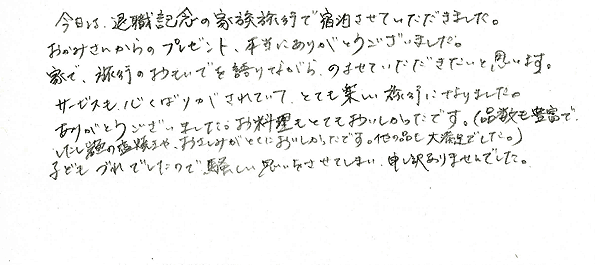 今日は、退職記念の家族旅行で宿泊させていただきました。
おかみさんからのプレゼント、本当にありがとうございました。
家で、旅行のおもいでを語りながら、のませていただきたいと思います。
サービスも、心くばりがされていて、とても楽しい旅行になりました。
ありがとうございました。お料理もとてもおいしかったです。(品数も豊富で、
の塩焼きや、おさしみがとくにおいしかったです。他の品も大満足でした。)
子どもづれでしたので騒しい思いをさせてしまい、申し訳ありませんでした。